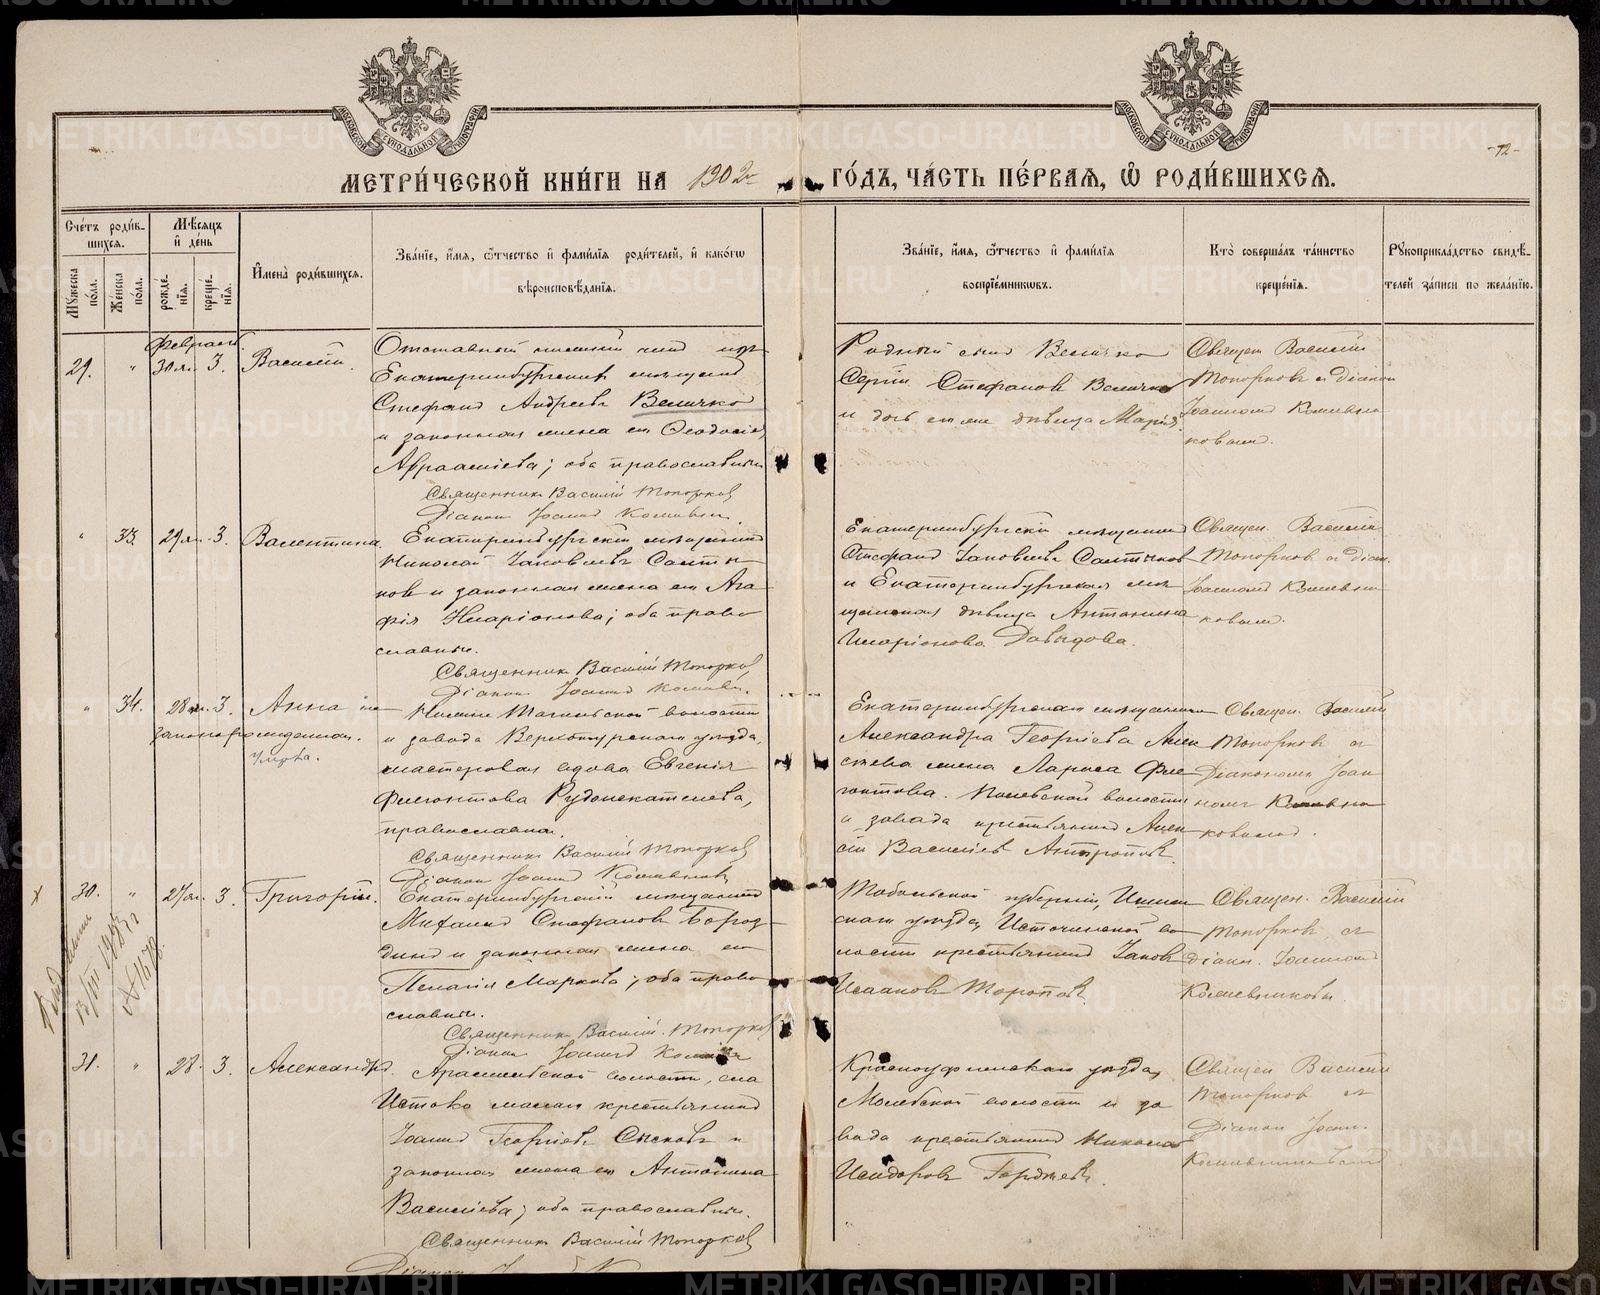 МЕТРИ́ЧЕСКОЙ КНИ́ГИ НА 1902 ГО́ДЪ, ЧА́СТЬ ПЕ́РВАѦ, Ѡ҆ РОДИ́ВШИХСѦ.
-12-
Сче́тъ роди́в-
шихся.
Мꙋ́жеска по́ла.
Же́нска по́ла.
Мѣ́сяцъ и҆ де́нь
рожде́-
нїя.
креще́-
нїя.
И҆мена̀ роди́вшихся.
Зва́нїе, и҆́мя, ѻ҆́тчество и҆ фами́лїя роди́телей, и҆ како́гѡ
вѣроисповѣ́данїя.
Зва́нїе, и҆́мя, ѻ҆́тчество и҆ фами́лїя
воспрїе́мникѡвъ.
Кто̀ соверша́лъ та́инство
креще́нїя.
Рꙋкоприкла́дство свидѣ́-
телей за́писи по жела́нїю.
Февраль
29. " 30 ян. 3. Василий.
Отставный
Екатеринбургский мещанин
Стефанъ Андреевъ Величко
и законная жена его Феодосия
Авраамiева; оба православные
Священникъ Василiй Топорковъ
Дiаконъ Iоаннъ
Родный сынъ Величко
Сергiй Стефановъ Величко
и дочь его же дѣвица Марiя.
Священ. Василiй
Топорковъ съ Дiакон
Iоанномъ
ковымъ.
" 33. 29 ян. 3. Валентина.
Екатеринбургскiй мѣщанинъ
Николай Iаковлевъ Салты-
ковъ и законная жена его Ага-
фiя Иларiонова; оба право-
славные.
Священникъ Василiй Топорковъ
Дiаконъ Iоаннъ
Екатеринбургскiй мѣщанинъ
Стефанъ Iаковлевъ Салтыковъ
и Екатеринбургская мѣ-
щанская дѣвица Антонина
Иларiонова Давыдова.
Священ. Василiй
Топорковъ съ Дiак.
Iоанномъ
ковымъ.
" 34. 28 ян. 3. Анна не-
законорожденная.
Умерла.
Нижне Тагильской волости
и завода Верхотурскаго уѣзда,
мастеровая вдова Евгенiя
Флегонтова Рудоискателева,
православная.
Священникъ Василiй Топорковъ
Дiаконъ Iоаннъ
Екатеринбургскаго мѣщанина
Александра Георгiева Алек-
сѣева жена Лариса Фле-
гонтова. Полевской волости
и завода крестьянинъ Алек-
сiй Василiевъ Антроповъ.
Священ. Василiй
Топорковъ съ
Дiакономъ Iоан-
номъ
ковымъ.
30. " 27 ян. 3. Григорiй.
Екатеринбургскiй мѣщанинъ
Михаилъ Стефановъ Бород-
динъ и законная жена его
Пелагiя Маркова; оба право-
славные.
Священникъ Василiй Топорковъ
Дiаконъ Iоаннъ
№ 1678.
Тобольской губернiи, Ишим-
скаго уѣзда, Источинской во-
лости крестьянинъ Iаковъ
Исааковъ Тороповъ.
Священ. Василiй
Топорковъ съ
дiакон. Iоанномъ
31. " 28. 3. Александръ.
Арамильской волости, села
Истока малаго крестьянинъ
Iоаннъ Георгiевъ Сысковъ и
законная жена его Антонина
Василiева; оба православные.
Священникъ Василiй Топорковъ
Дiаконъ
Красноуфимскаго уѣзда,
Молебской волости и за-
вода крестьянинъ Николай
Исидоровъ
Священ. Василiй
Топорковъ съ
Дiакон Iоан.
METRIKI.GASO-URAL.RU